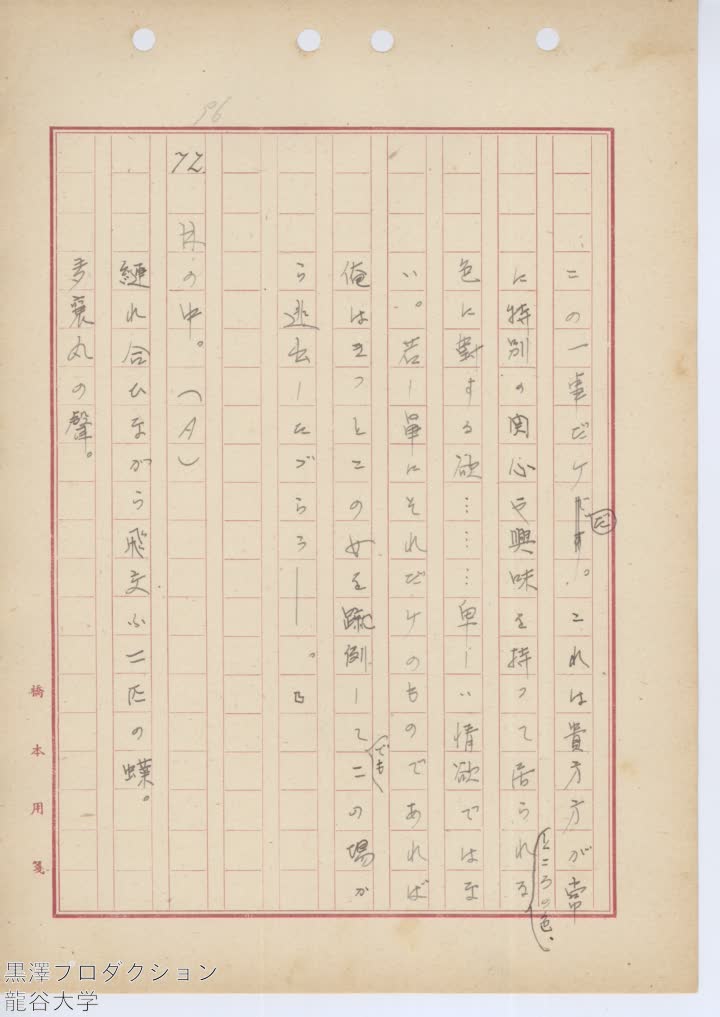 96
この一事だけだ。これは貴方方が常
に特別の関心や興味を持つて居られる
ところの色、
色に對する欲………卑しい情欲ではな
い。若し單にそれだけのものであれば
俺はきつとこの女を蹴倒してでもこの場か
ら逃出したゞらう――。」
72. 林の中。(A)
縺れ合ひながら飛交ふ二匹の蝶。
多襄丸の聲。
橋本用箋
黒澤プロダクション
龍谷大学